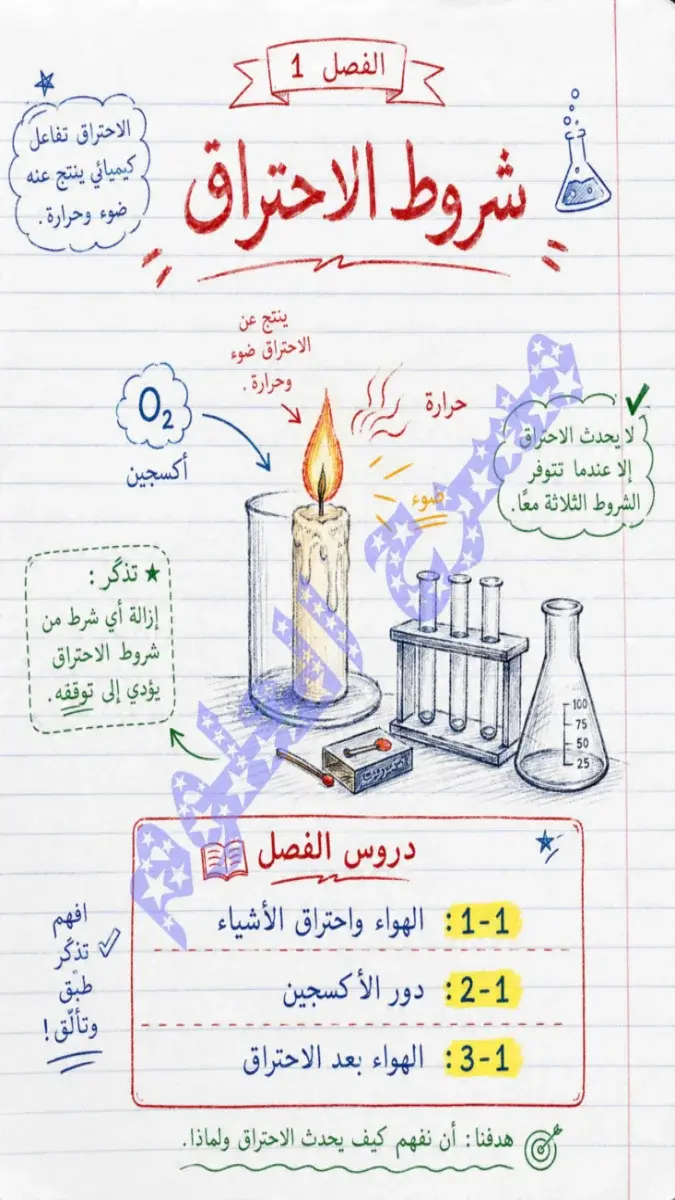 الفصل 1
شروط الاحتراق
الاحتراق تفاعل
كيميائي ينتج عنه
ضوء وحرارة.
ينتج عن
الاحتراق ضوء
وحرارة.
حرارة
ضوء
O₂
أكسجين
لا يحدث الاحتراق
إلا عندما تتوفر
الشروط الثلاثة معًا.
★ تذكّر:
إزالة أي شرط من
شروط الاحتراق
يؤدي إلى توقفه.
100
75
50
25
دروس الفصل
1-1: الهواء واحتراق الأشياء
2-1: دور الأكسجين
3-1: الهواء بعد الاحتراق
افهم
تذكّر
طبّق
وتألّق!
هدفنا: أن نفهم كيف يحدث الاحتراق ولماذا.